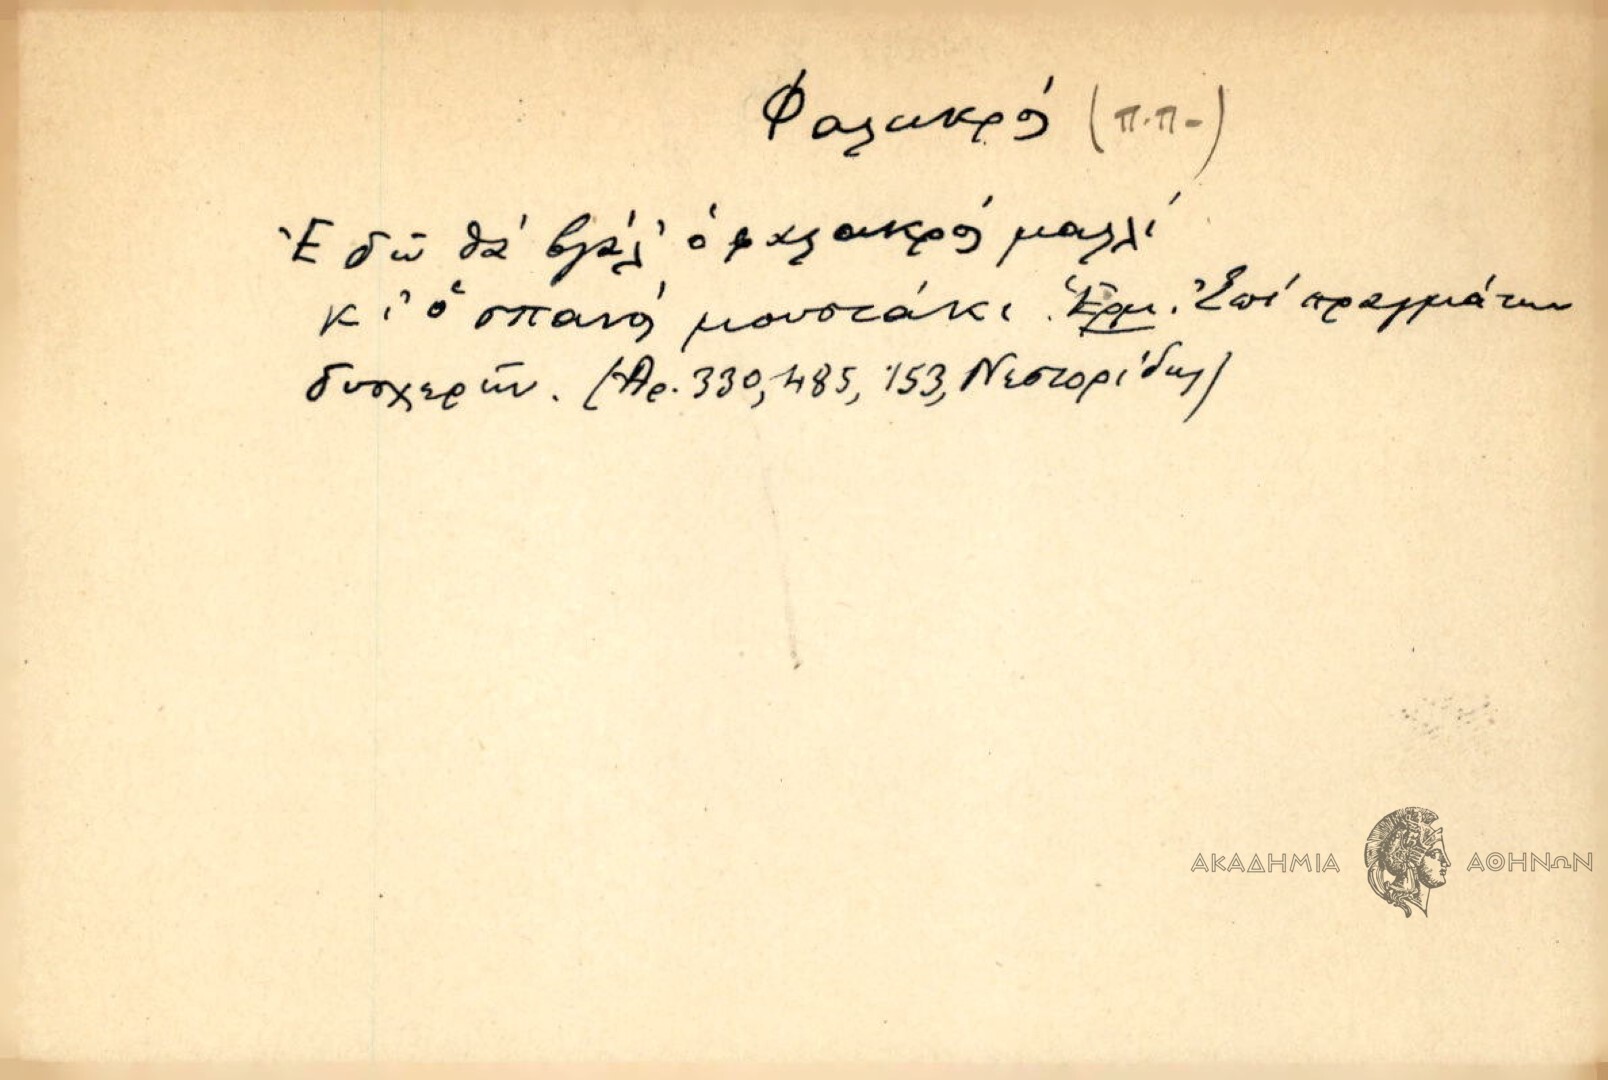 Φαλακρός (π.π.)
Ἐδῶ θὰ βγάλ' ὁ φαλακρός μαλλί
κι' ὁ σπανός μουστάκι. Ἑρμ. Ἐπί πραγμάτων
δυσχερῶν. (Ἀρ. 330, 485, 153, Νεστορίδης)
ΑΚΑΔΗΜΙΑ ΑΘΗΝΩΝ